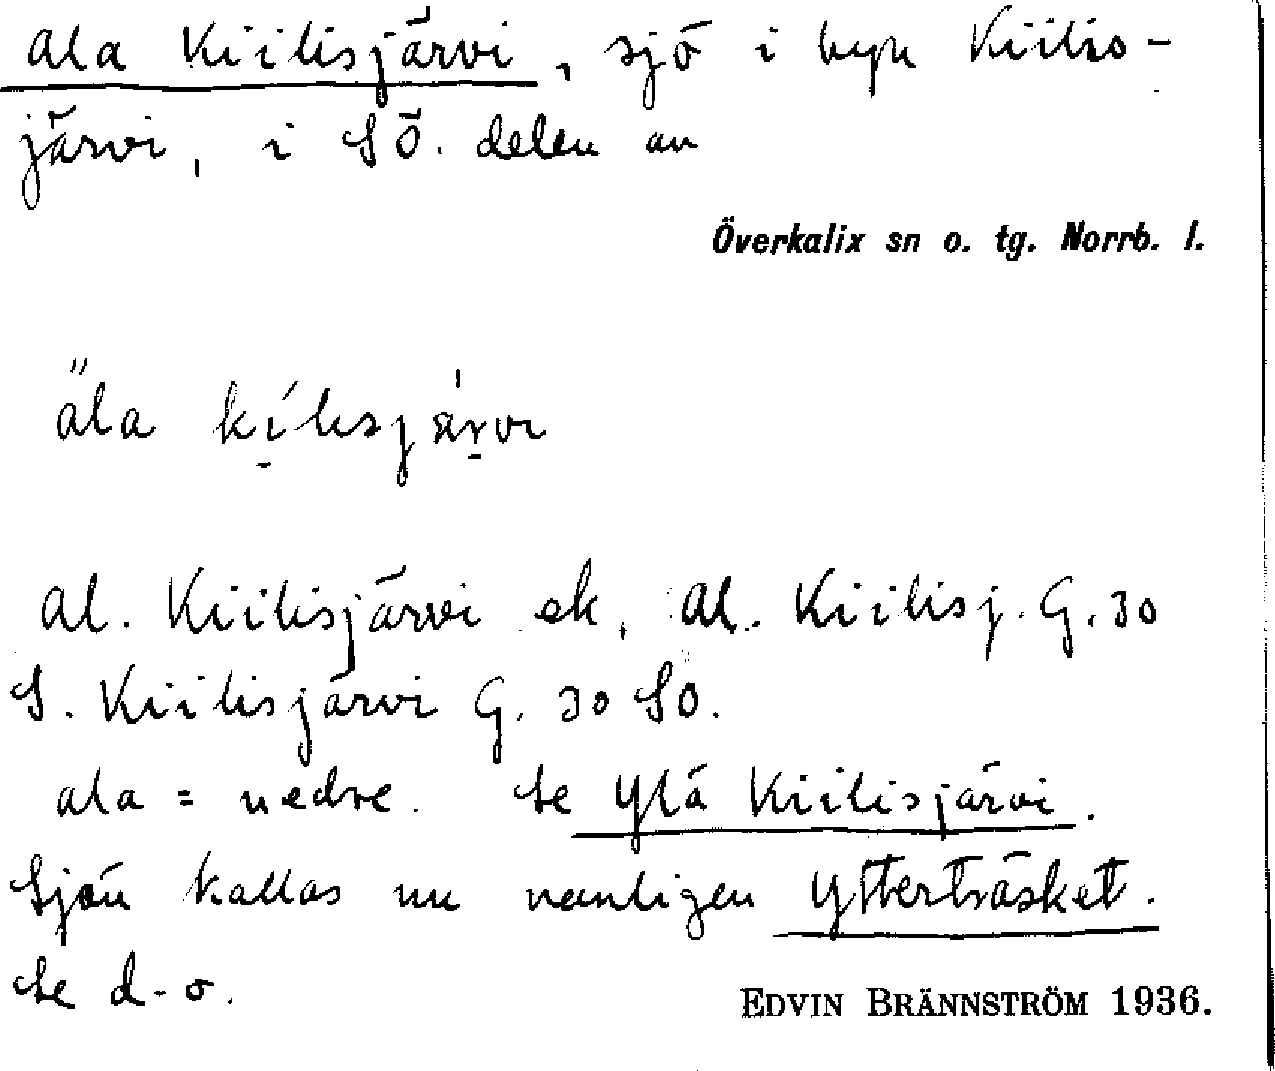 Ala Kiilisjärvi, sjö i byn Kiilis-
järvi, i SÖ. delen av
Överkalix sn o. tg. Norrb. l.
ala kilisjärvi
Al. Kiilisjärvi ek, Al. Kiilisj. G. 30
S. Kiilisjärvi G. 30 SÖ.
ala = nedre. Se Ylä Kiilisjärvi.
Sjön kallas nu vanligen Ytterträsket.
Se d-o.
EDVIN BRÄNNSTRÖM 1936.